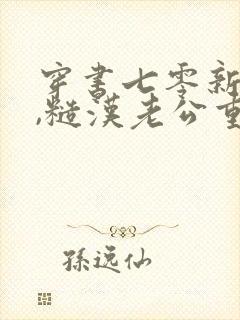 穿书七零新
,糙汉老公重
孙远仙